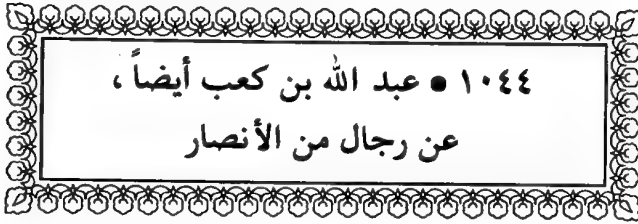 ١٠٤٤ • عبد الله بن كعب أيضاً،
عن رجال من الأنصار